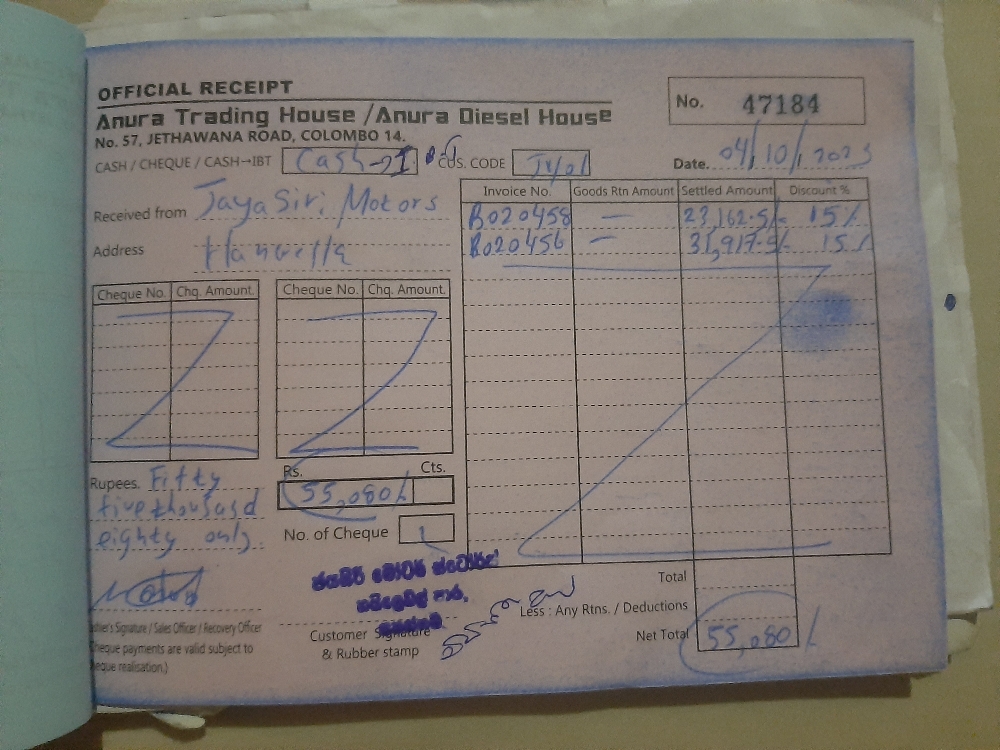 OFFICIAL RECEIPT
Anura Trading House / Anura Diesel House
No. 57, JETHAWANA ROAD, COLOMBO 14.
No. 47184
CASH / CHEQUE / CASH→IBT Cash→I CUS. CODE
Date. 04/10/2023
Received from Jaya Siri Motors
Address Hanwella
Invoice No. Goods Rtn Amount Settled Amount Discount %
B020458 — 23,162.5/= 15%
B020456 — 31,917.5/- 15%
Cheque No. Chq. Amount. Cheque No. Chq. Amount.
Rupees. Fifty
five thousand
eighty only
Rs. Cts.
55,080/
No. of Cheque
ජයසිරි මෝටර් ස්ටෝර්ස්
පාර,
Customer Signature
& Rubber stamp
Signature / Sales Officer / Recovery Officer
cheque payments are valid subject to
cheque realisation.)
Total
Less : Any Rtns. / Deductions
Net Total 55,080/